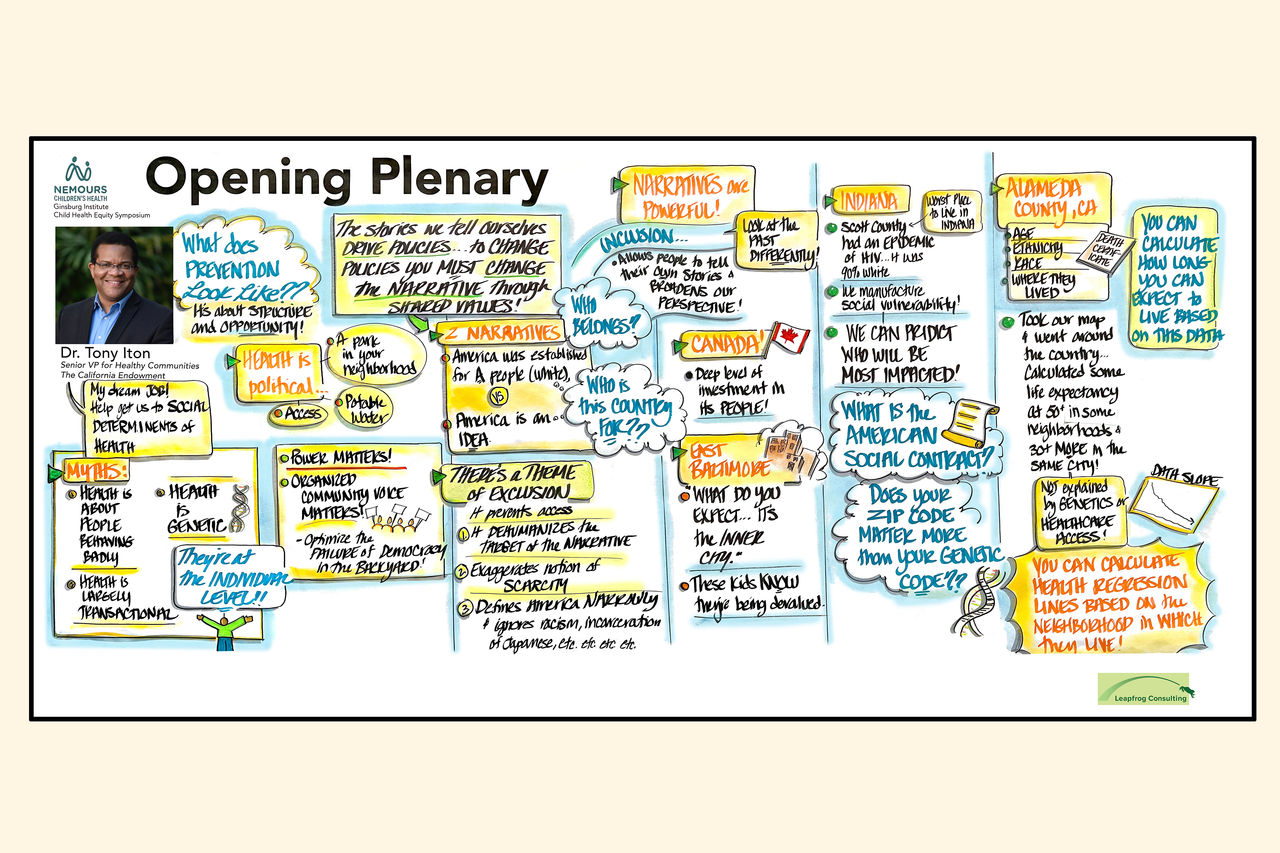 NEMOURS
CHILDREN'S HEALTH
Ginsburg Institute
Child Health Equity Symposium
Opening Plenary
Dr. Tony Iton
Senior VP for Healthy Communities
The California Endowment
My dream JOB!
Help get us to SOCIAL
DETERMINENTS of
HEALTH
What does
PREVENTION
Look Like??
It's about STRUCTURE
and OPPORTUNITY!
HEALTH is
political...
A park
in your
neighborhood
Access
Potable
Water
MYTHS:
HEALTH IS
ABOUT
PEOPLE
BEHAVING
BADLY
HEALTH IS
LARGELY
TRANSACTIONAL
HEALTH
IS
GENETIC
They're at
the INDIVIDUAL
LEVEL!!
POWER MATTERS!
ORGANIZED
COMMUNITY VOICE
MATTERS!
- Optimize the
FAILURE of Democracy
IN the BACKYARD!
The stories we tell ourselves
DRIVE POLICIES... to CHANGE
POLICIES YOU MUST CHANGE
the NARRATIVE through
SHARED VALUES!
2 NARRATIVES
America was established
for A people (white),
VS
America is an
IDEA.
WHO
BELONGS?
WHO is
this COUNTRY
FOR??
THERE'S a THEME
of EXCLUSION
It prevents access
1 It DEHUMANIZES the
TARGET of the NARRATIVE
2 Exaggerates notion of
SCARCITY
3 Defines America NARROWLY
& ignores racism, incarceration
of Japanese, etc. etc etc etc.
NARRATIVES are
POWERFUL!
INCLUSION...
Allows people to tell
their own stories &
BROADENS our
PERSPECTIVE!
Look at the
PAST
DIFFERENTLY!
CANADA!
Deep level of
investment in
its PEOPLE!
EAST
BALTIMORE
"WHAT DO YOU
EXPECT... IT'S
the INNER
CITY."
These kids KNOW
they're being devalued.
INDIANA
Worst place
to live in
INDIANA
Scott County
had an EPIDEMIC
of HIV... it was
90% white
We manufacture
social vulnerability!
WE CAN PRIDICT
WHO WILL BE
MOST IMPACTED!
WHAT IS the
AMERICAN
SOCIAL CONTRACT?
DOES YOUR
ZIP CODE
MATTER MORE
than YOUR GENETIC
CODE??
ALAMEDA
COUNTY, CA
AGE
ETHNICITY
RACE
WHERE THEY
LIVED
DEATH
CERTIF-
ICATE
YOU CAN
CALCULATE
HOW LONG
YOU CAN
EXPECT to
LIVE BASED
ON THIS DATA
Took our map
& went around
the country...
Calculated some
life expectancy
at 50+ in some
neighborhoods &
30+ MORE in the
SAME CITY!
NOT explained
by GENETICS or
HEALTHCARE
ACCESS!
DATA SLOPE
YOU CAN CALCULATE
HEALTH REGRESSION
LINES BASED ON the
NEIGHBORHOOD in WHICH
they LIVE!
Leapfrog Consulting